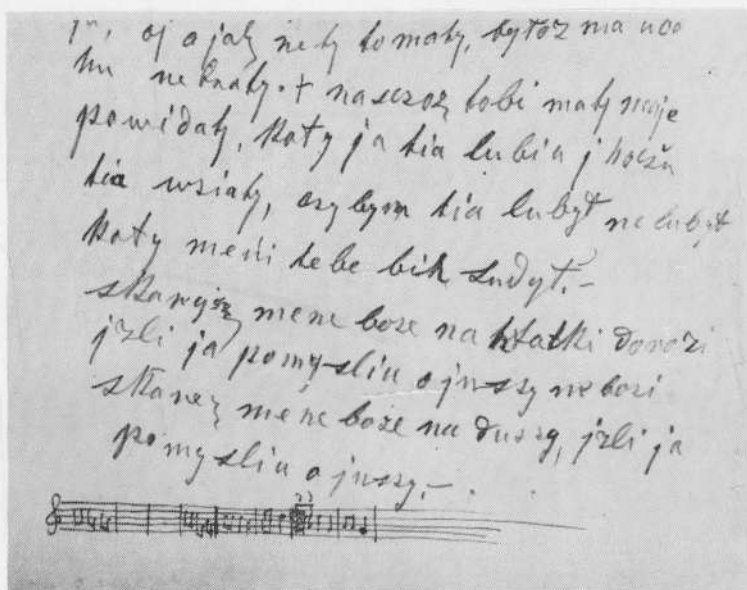 oj a jak ne ty to maty, bytoz ma uco
hu ne knaty. + naseroz tobi maty moje
powidaty, koty ja tia lubia j hoczu
tia wsiaty, czy bym tia lubył ne lubył
koty meni tebe bih sudył.-
skarejsz mene boze na hładki dorozi
jżli ja pomysliu o juszy nebozi
skarez mene boze na duszy, jżli ja
pomysliu o juszy.-